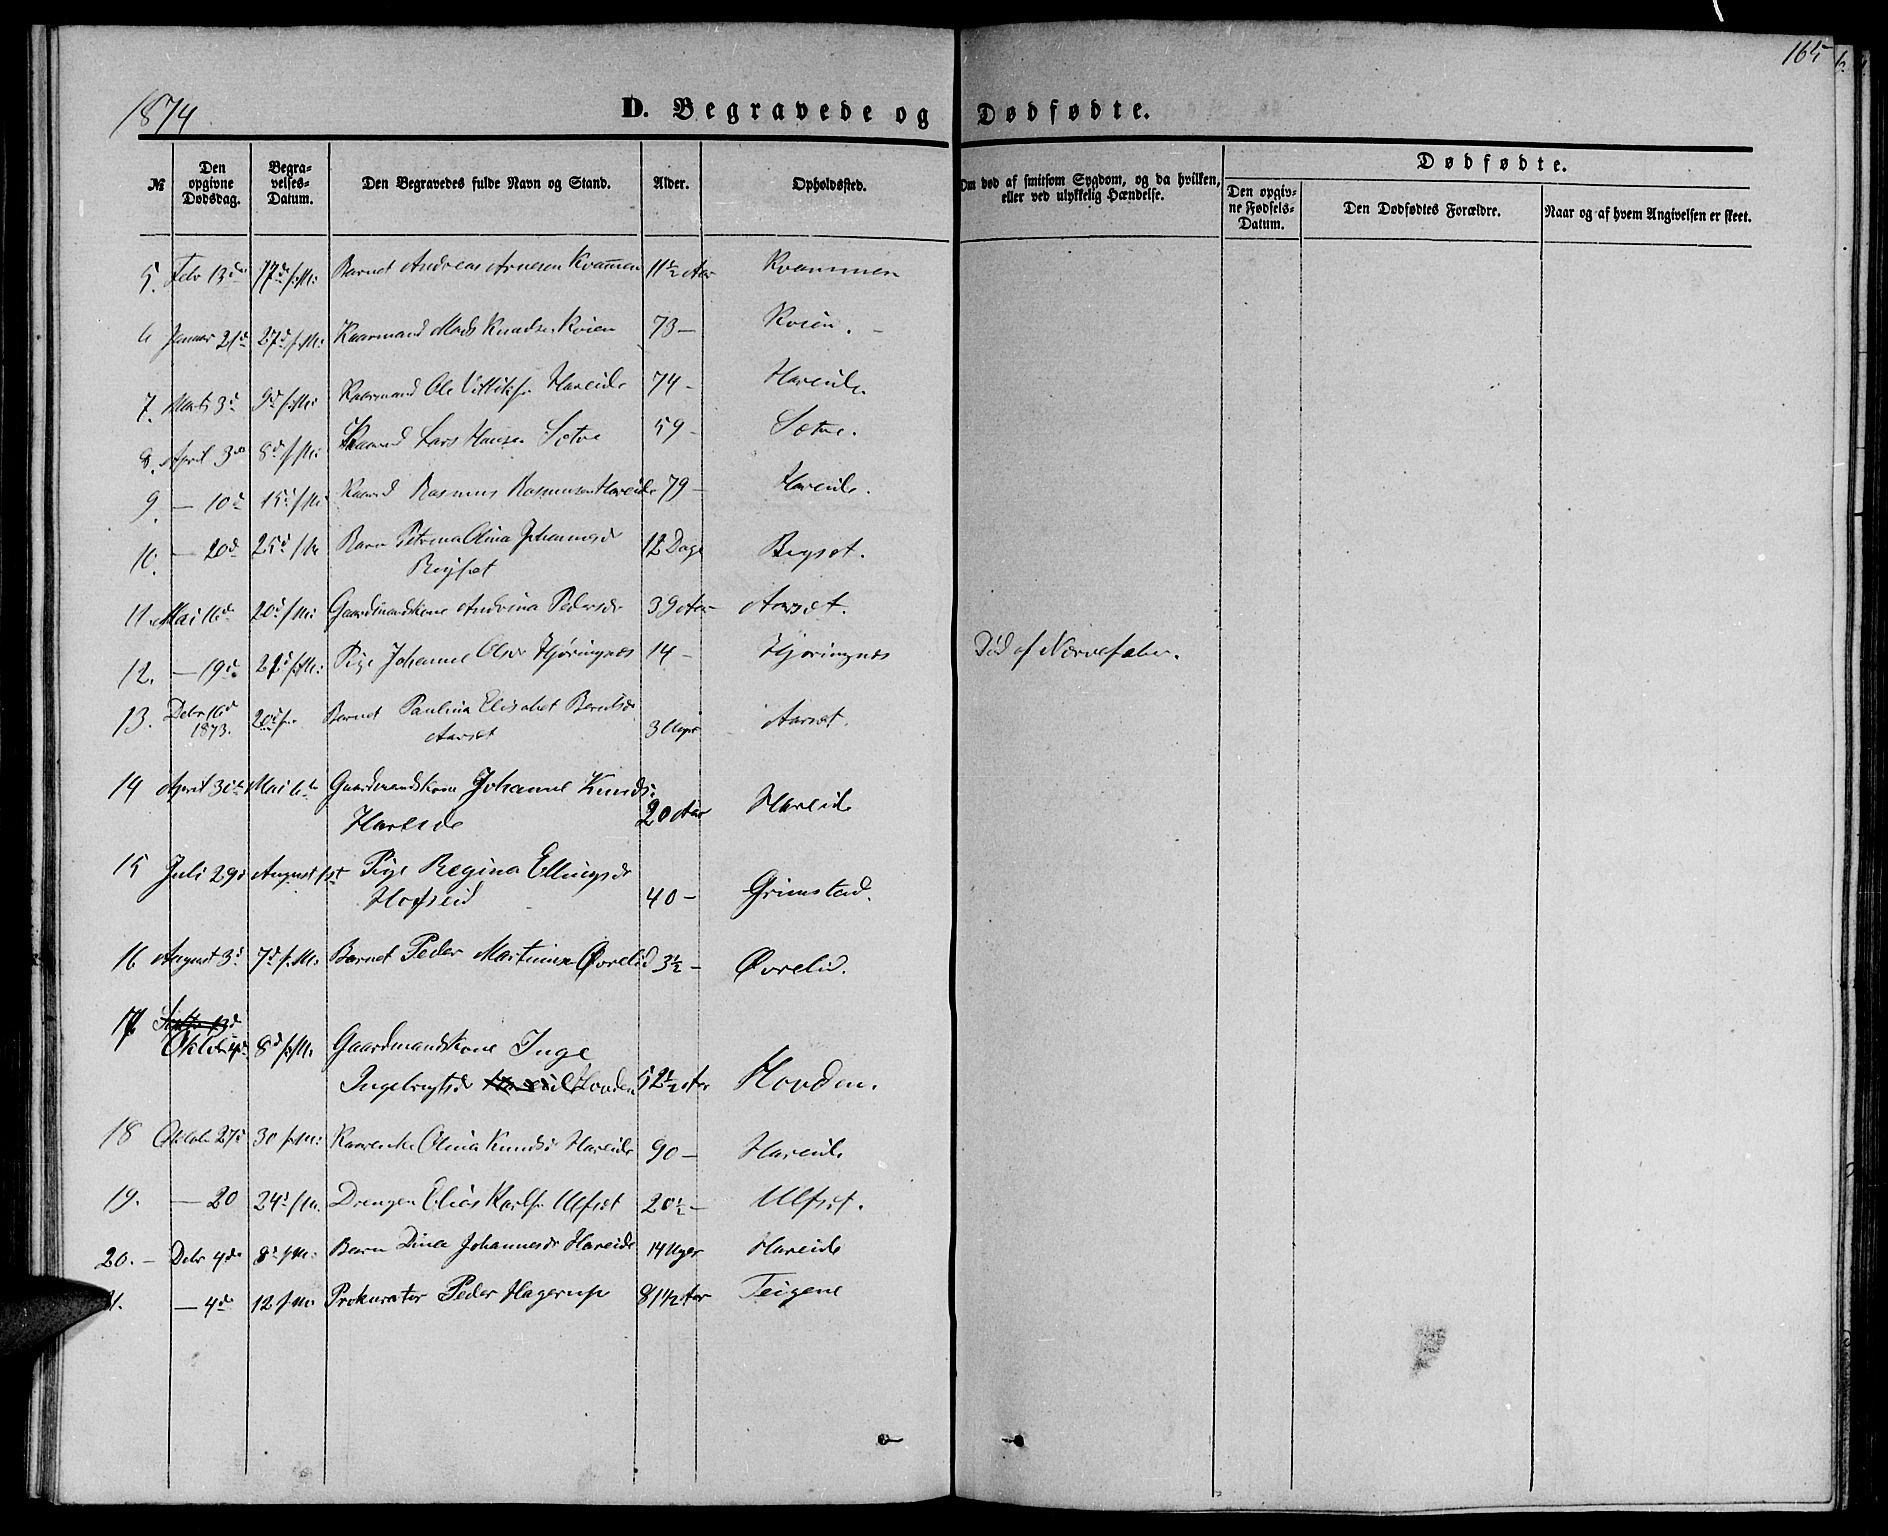 165
1874
D. Begravede og Dødfødte.
№ | Den opgivne Dødsdag. | Begravelses-Datum. | Den Begravedes fulde Navn og Stand. | Alder. | Opholdssted. | Om død af smitsom Sygdom, og da hvilken, eller ved ulykkelig Hændelse. | Dødfødte. | Den opgivne Fødsels-Datum. | Den Dødfødtes Forældre. | Naar og af hvem Angivelsen er skeet.
5. Febr 13de 17de f.M. Barnet Andreas Arnesen Kvammen 11½ Aar Kvammen
6 Januar 21de 27d f.M. Kaarmand Mads Knudsen Kvien 73 — Kvien. —
7. Marts 3d 9d f.M. Kaarmand Ole Hareide 74 — Hareide.
8. April 3de 8d f.M. Kaarmd Lars Hansen Sætre 59 — Sætre.
9. — 10d 15d f.M. Kaarmd Rasmus Rasmusen Hareide 79 — Hareide.
10. — 20d 25d f.M. Barn Petrina Olina Johannesdr 12 Dage Rygset.
Rygset
11. Mai 16d 20d f.M. Gaardmandskone Andrina Pedersdr 39 Aar Aarset.
12. — 19d. f.M. Pige Johanne Olsdr Hjøringnes 14 — Hjøringnes Død af Nervefeber.
13. Debr 16d 20d f. Barnet Paulina Elisabet Berntsdr 3 Uger Aarset.
1873. Aarset
14 April 30te Mai 6te Gaardmandskone Johanne Knudsd: 20 Aar Hareide
Hareide
15 Juli 29d August 1st Pige Regina Ellingsdr 40 — Grimstad.
Hofseid
16 August 3d 7d f.M. Barnet Peder Martinusen Øvrelid 3½ — Øvrelid.
17. Septbr 13d
Oktbr 4de 8d f.M. Gaardmandskone Inge
Ingebrigtsdr Hareid Hovden 52½ Aar Hovden.
18 Oktobr 27d 30 f.M. Kaarenke Olina Knudsd Hareide 90 — Hareide
19. — 20 24d f.M. Drengen Elias Karlsen Ulfset 20½ — Ulfset.
20. — Debr 4de 8d f.M. Barn Dina Johannesdr Hareide 14 Uger Hareide
21. — 4de 12 f.M. Prokurator Peder Hagerup 81½ Aar Teigene